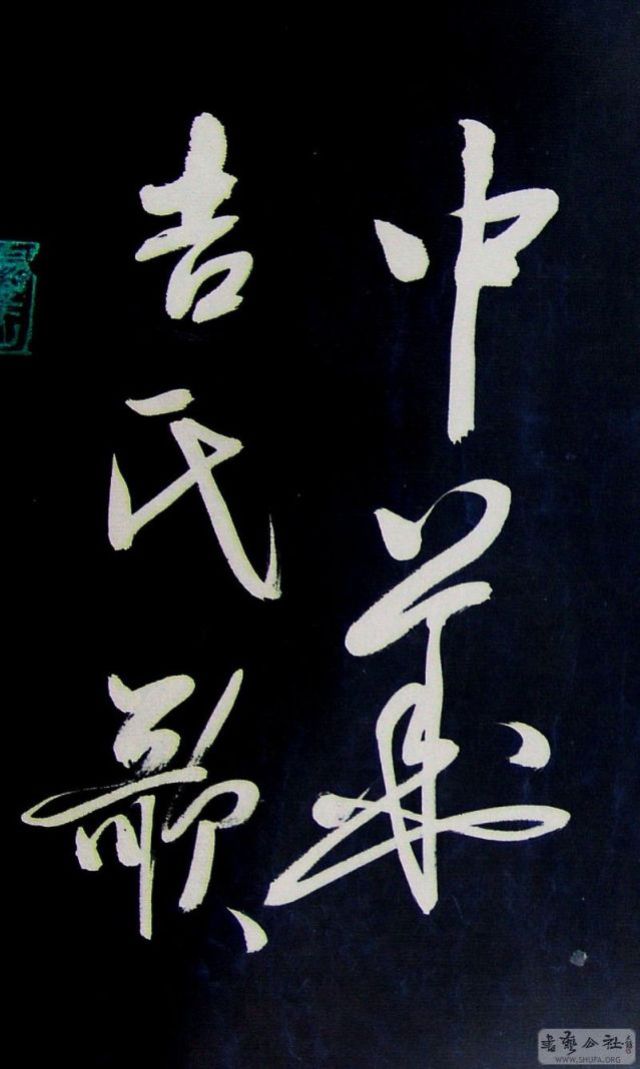 中華
吉氏歌
書藝公社
WWW.SHUFA.ORG